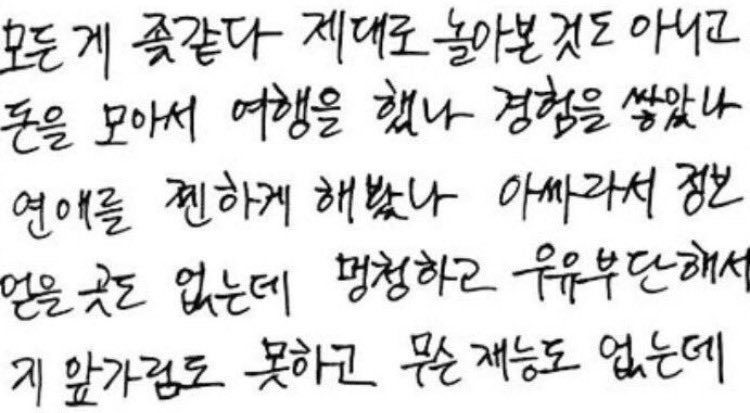 모든 게 좆같다 제대로 놀아본것도 아니고
돈을 모아서 여행을 했나 경험을 쌓았나
연애를 찐하게 해봤나 아싸라서 정보
얻을 곳도 없는데 멍청하고 우유부단해서
지 앞가림도 못하고 무슨 재능도 없는데